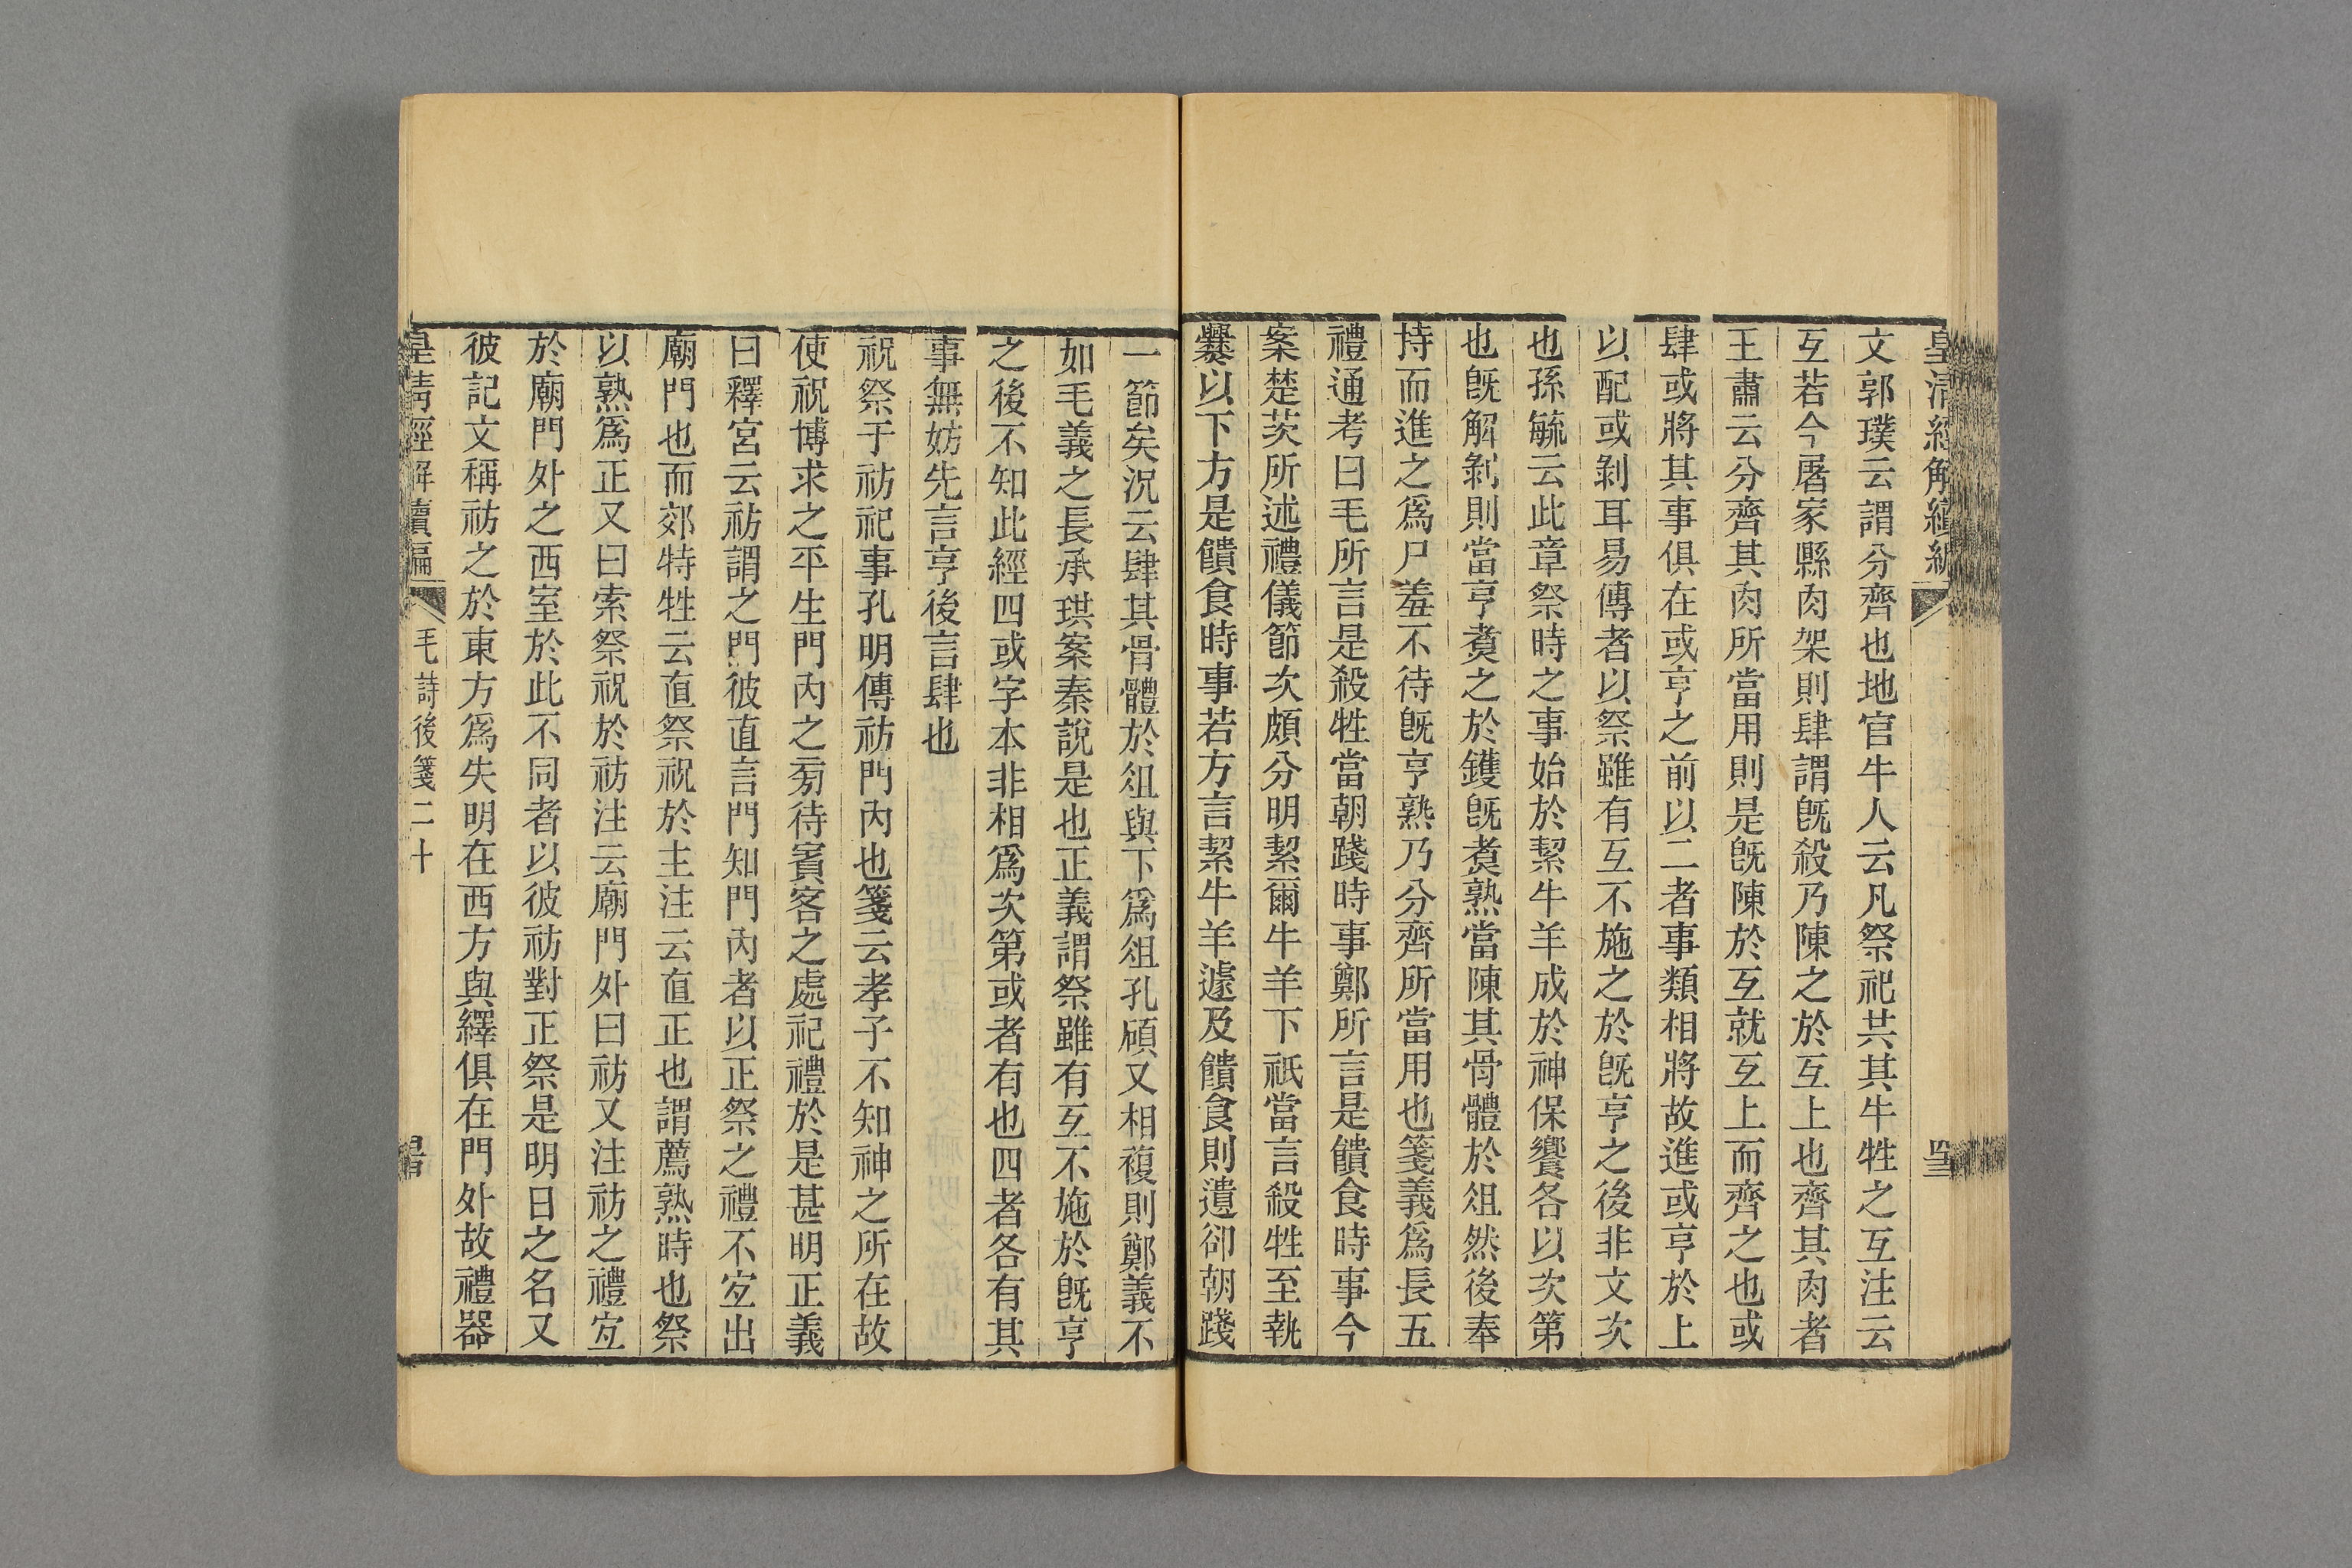 皇清經解續編
文郭璞云謂分齊也地官牛人云凡祭祀共其牛牲之互注云
互若今屠家縣肉架則肆謂旣殺乃陳之於互上也齊其肉者
王肅云分齊其肉所當用則是旣陳於互就互上而齊之也或
肆或將其事俱在或亨之前以二者事類相將故進或亨於上
以配或剝耳易傳者以祭雖有互不施之於旣亨之後非文次
也孫毓云此章祭時之事始於絜牛羊成於神保饗各以次第
也旣解剝則當亨煑之於鑊旣煑熟當陳其骨體於俎然後奉
持而進之爲尸羞不待旣亨熟乃分齊所當用也箋義爲長五
禮通考曰毛所言是殺牲當朝踐時事鄭所言是饋食時事今
案楚茨所述禮儀節次頗分明絜爾牛羊下祇當言殺牲至執
爨以下方是饋食時事若方言絜牛羊遽及饋食則遺卻朝踐
一節矣況云肆其骨體於俎與下爲俎孔碩又相複則鄭義不
如毛義之長承珙案秦說是也正義謂祭雖有互不施於旣亨
之後不知此經四或字本非相爲次第或者有也四者各有其
事無妨先言亨後言肆也
祝祭于祊祀事孔明傳祊門內也箋云孝子不知神之所在故
使祝博求之平生門內之㫄待賓客之處祀禮於是甚明正義
曰釋宮云祊謂之門彼直言門知門內者以正祭之禮不宐出
廟門也而郊特牲云直祭祝於主注云直正也謂薦熟時也祭
以熟爲正又曰索祭祝於祊注云廟門外曰祊又注祊之禮宐
於廟門外之西室於此不同者以彼祊對正祭是明日之名又
彼記文稱祊之於東方爲失明在西方與繹俱在門外故禮器
皇清經解續編 毛詩後箋二十